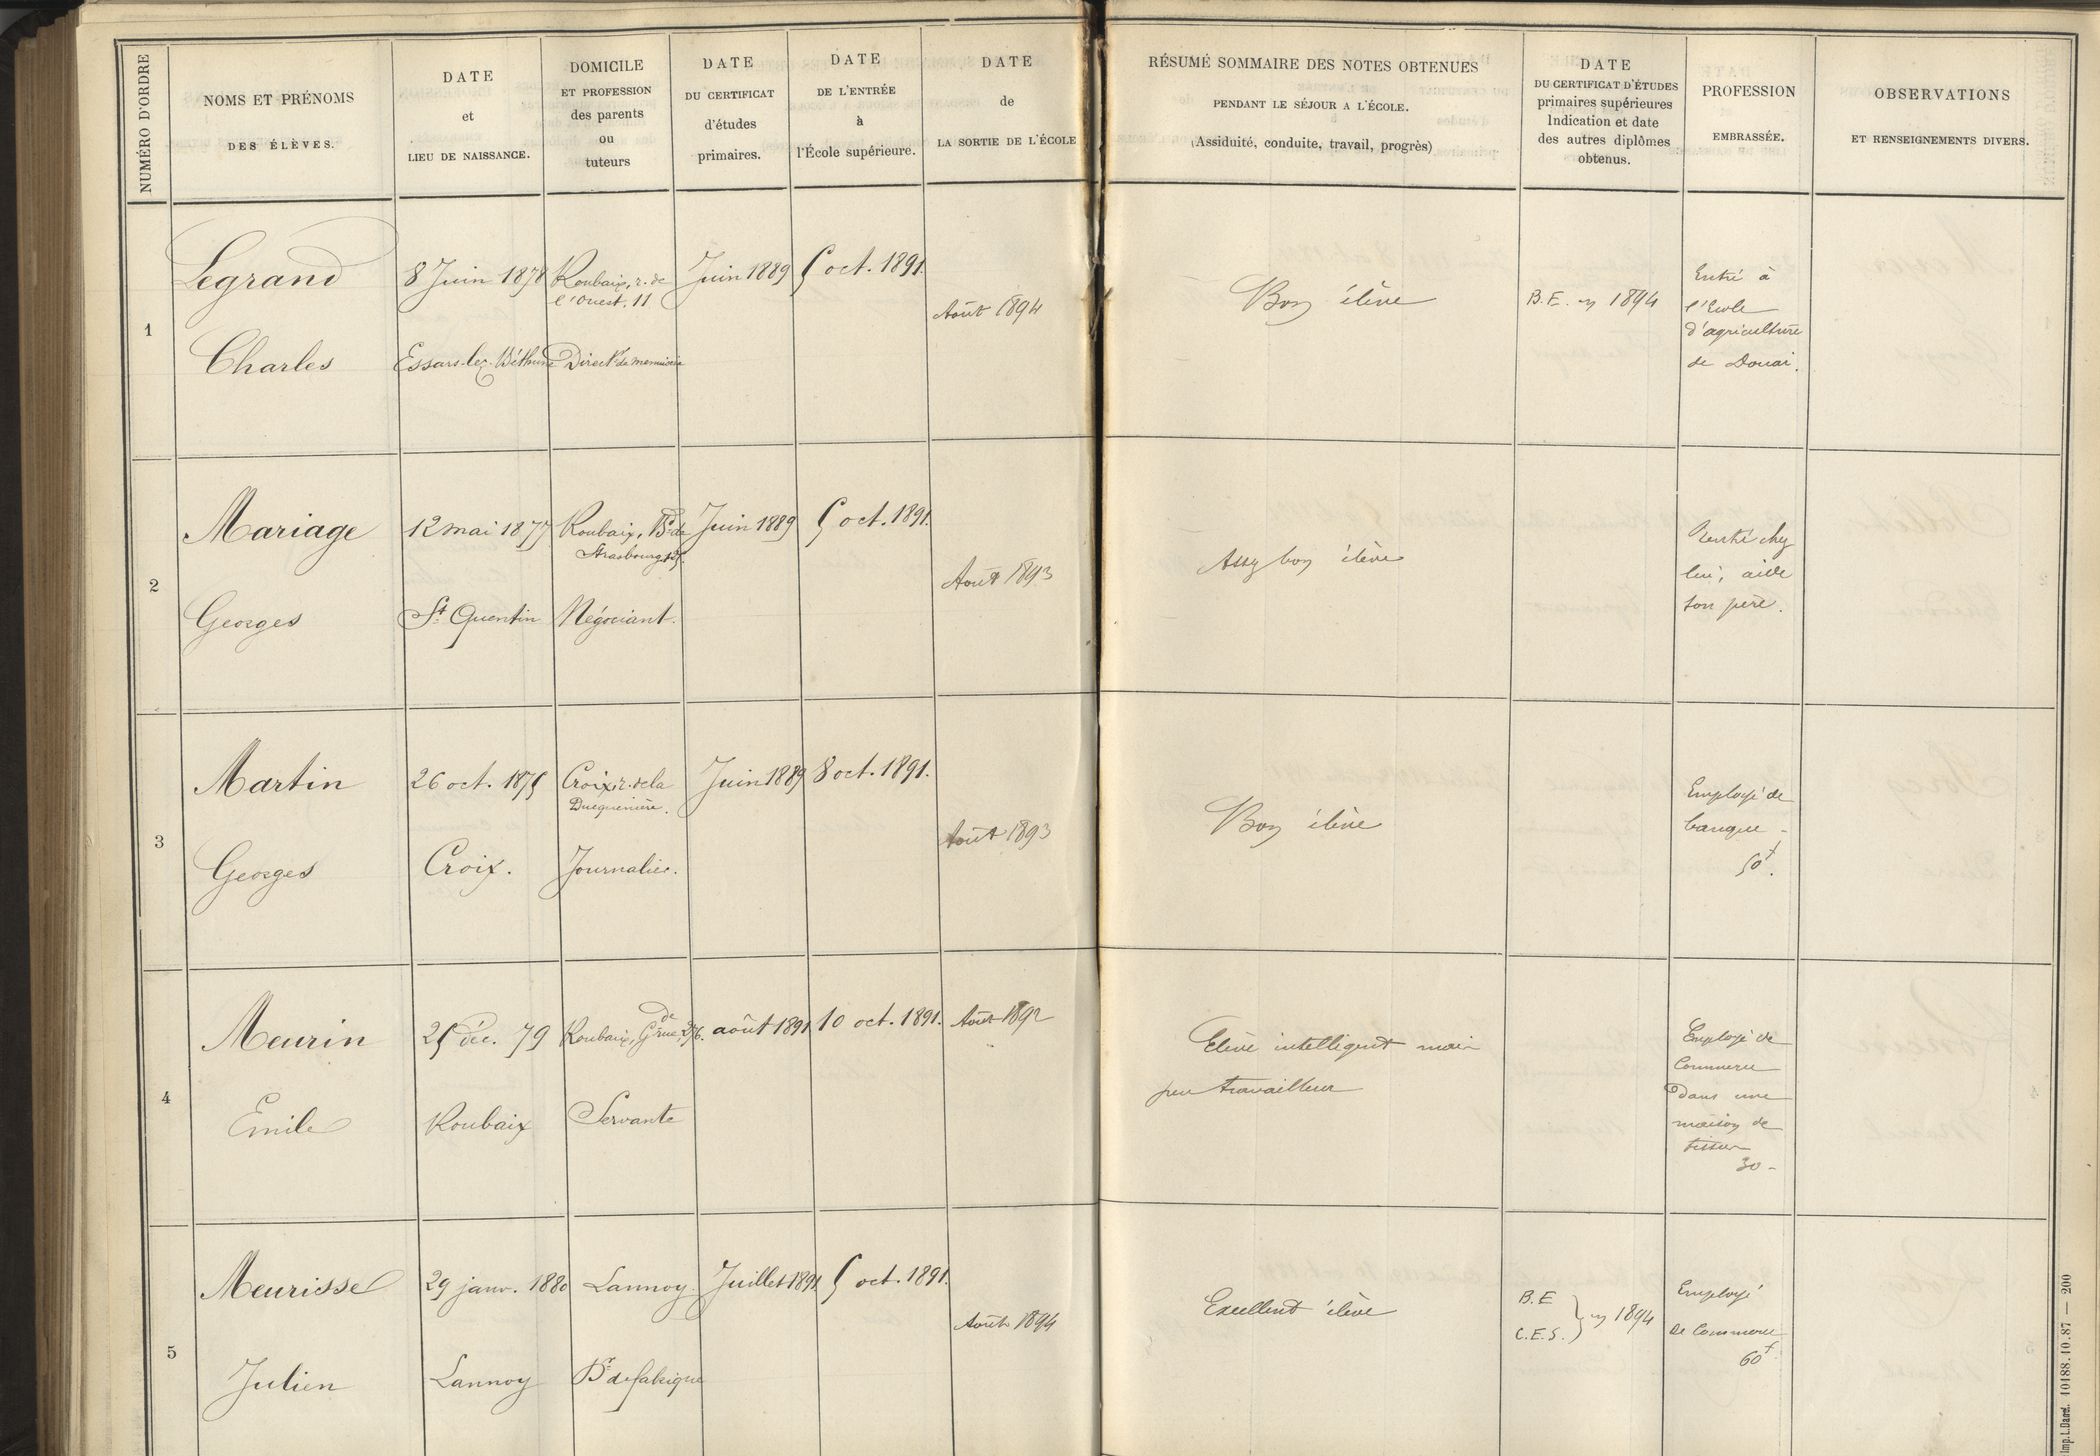 NUMÉRO D'ORDRE
NOMS ET PRÉNOMS
DES ÉLÈVES.
DATE
et
LIEU DE NAISSANCE.
DOMICILE
ET PROFESSION
des parents
ou
tuteurs
DATE
DU CERTIFICAT
d'études
primaires.
DATE
DE L'ENTRÉE
à
l'École supérieure.
DATE
de
LA SORTIE DE L'ÉCOLE
RÉSUMÉ SOMMAIRE DES NOTES OBTENUES
PENDANT LE SÉJOUR A L'ÉCOLE.
(Assiduité, conduite, travail, progrès)
DATE
DU CERTIFICAT D'ÉTUDES
primaires supérieures
Indication et date
des autres diplômes
obtenus.
PROFESSION
EMBRASSÉE.
OBSERVATIONS
ET RENSEIGNEMENTS DIVERS.
1
Legrand
Charles
8 Juin 1878
Essars-lez-Béthune
Roubaix, r. de
l'Ouest, 11
Direct<sup>r</sup> de menuiserie
Juin 1889
5 oct. 1891.
Août 1894
Bon élève
B.E. en 1894
Entré à
l'Ecole
d'agriculture
de Douai.
2
Mariage
Georges
12 mai 1877
St Quentin
Roubaix, Bd de
Strasbourg
Négociant.
Juin 1889
5 oct. 1891.
Août 1893
Assez bon élève
Rentré chez
lui, aide
son père.
3
Martin
Georges
26 oct. 1875
Croix.
Croix, r. de la
Duquenière.
Journalier.
Juin 1889
8 oct. 1891.
Août 1893
Bon élève
Employé de
banque -
50f.
4
Meurin
Emile
25 déc. 79
Roubaix
Roubaix, Gde rue, 276.
Servante
août 1891
10 oct. 1891.
Août 1892
Elève intelligent mais
peu travailleur
Employé de
Commerce
dans une
maison de
tissus
30 -
5
Meurisse
Julien
29 janv. 1880
Lannoy
Lannoy.
Dr de fabrique
Juillet 1891.
5 oct. 1891.
Août 1894
Excellent élève
B.E
C.E.S. } en 1894
Employé
de Commerce
60f
Imp. L. Danel. 10188.10.87 — 200